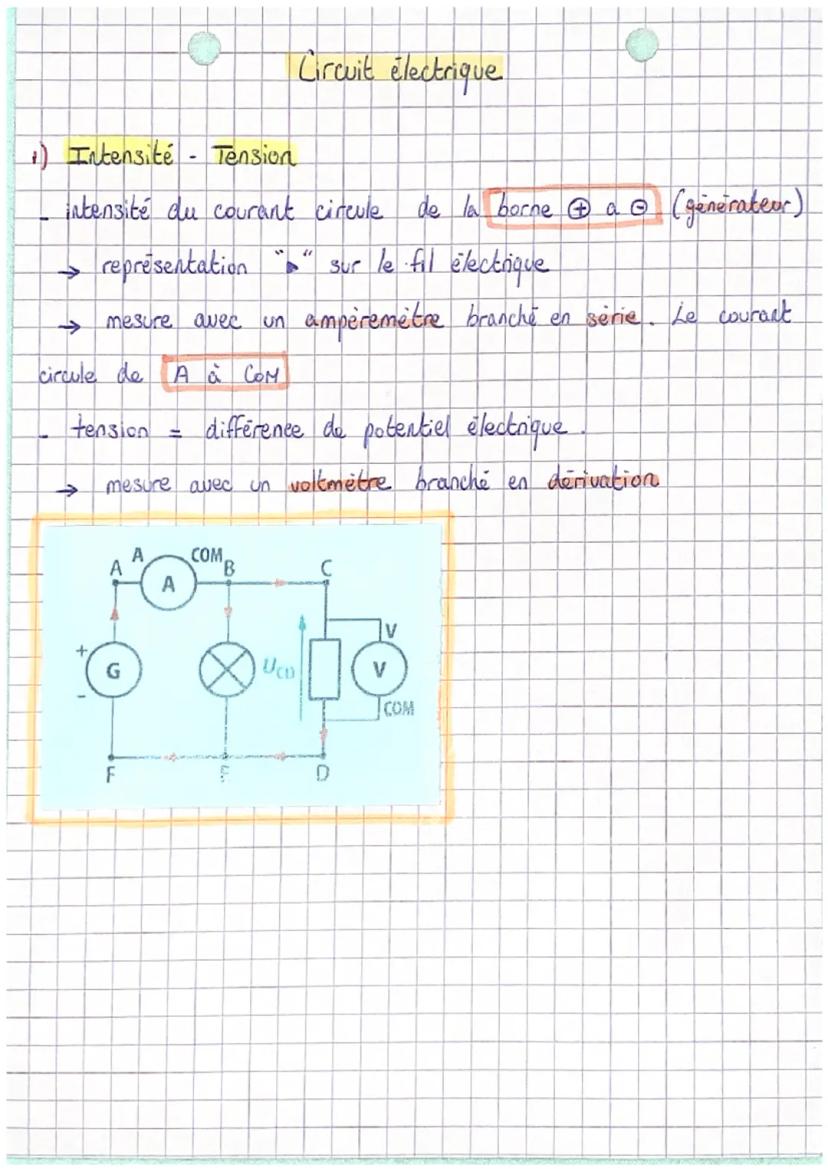 Circuit électrique
1) Intensité - Tension
- intensité du courant circule de la borne ⊕ a ⊖ (générateur)
→ représentation "▸" sur le fil électrique
→ mesure avec un ampèremètre branché en série. Le courant
circule de A à COM
- tension = différence de potentiel électrique.
→ mesure avec un voltmètre branché en dérivation
A A COM B C
A
+ G - U_CD V V COM
F E D